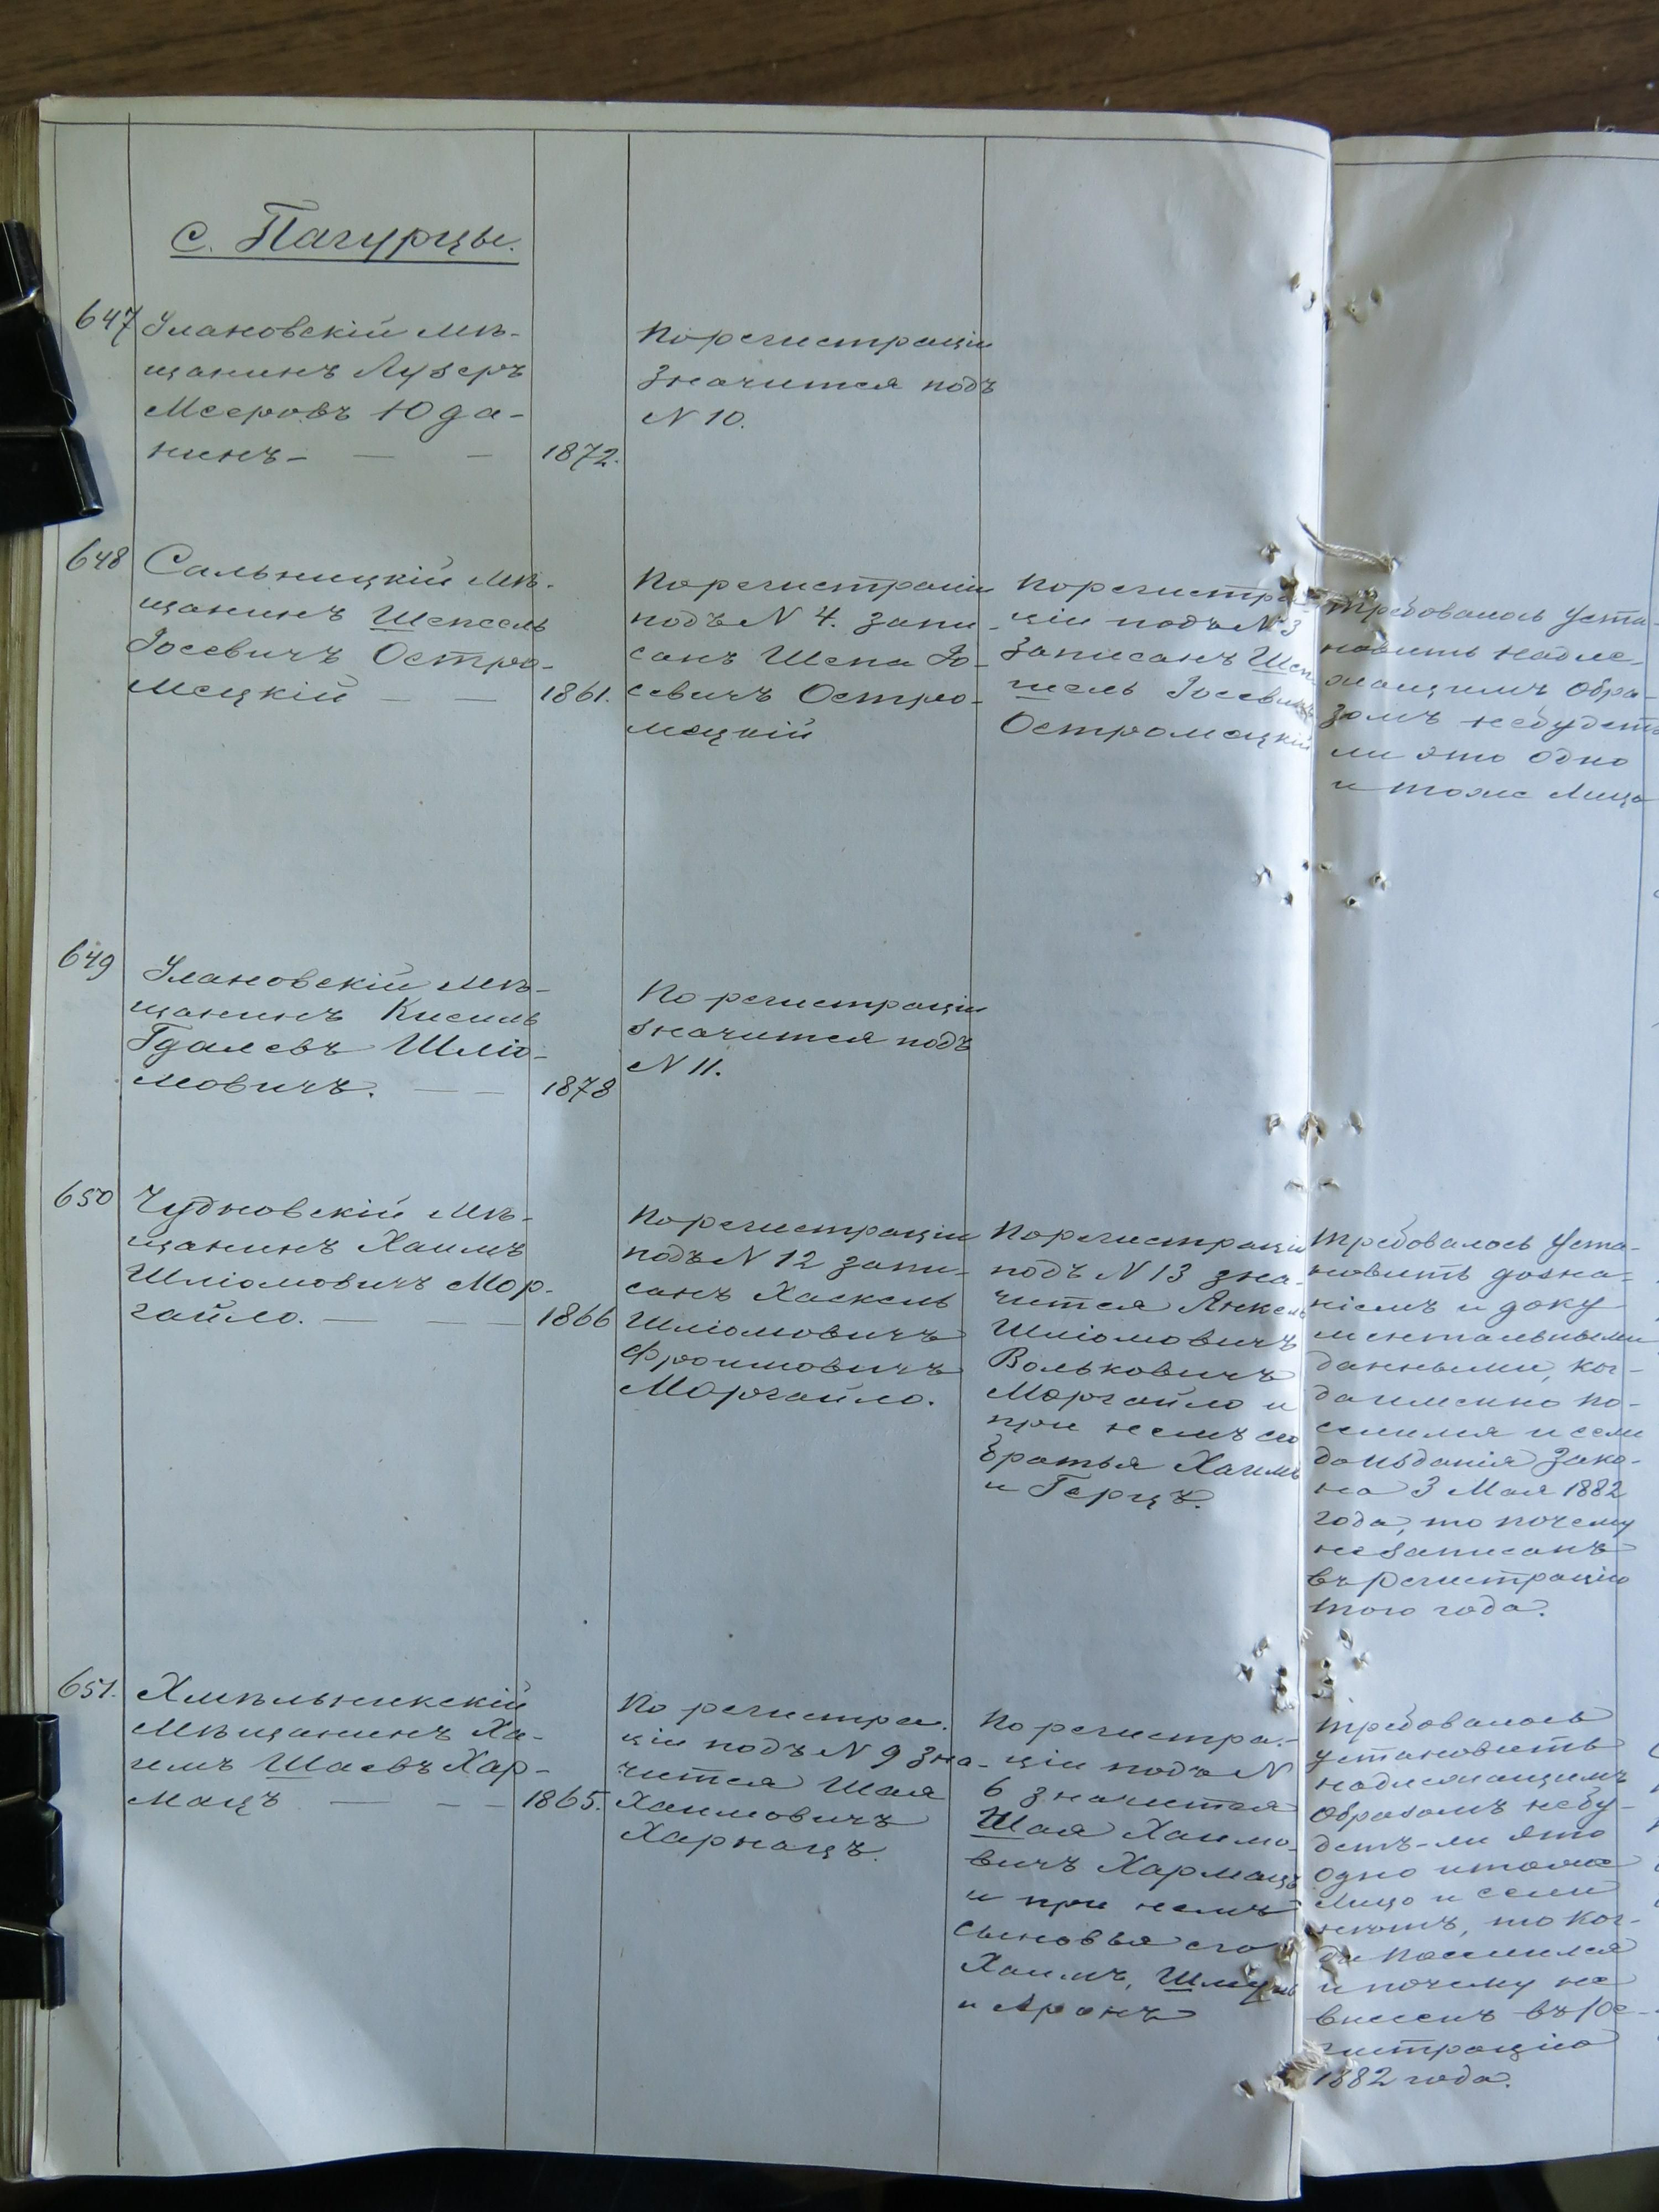 с. Пагурцы.
647
Улановскій мѣ-
щанинъ Лузеръ
Мееровъ Юда-
нинъ - — -
1872.
По регистраціи
значится подъ
N 10.
648
Сальницкій мѣ-
щанинъ Шепсель
Іосевичъ Остро-
мецкій — —
1861.
По регистраціи
подъ N 4. запи-
санъ Шепа Іо-
севичъ Остро-
мецкій
По регистра-
ціи подъ N 3
записанъ Шеп
Іосевичъ
Остромецкій
Требовалось уста-
новить надле-
жащимъ обра-
зомъ небудетъ
ли это одно
и тоже лицо
649
Улановскій мѣ-
щанинъ Кисиль
Гдалевъ Шліо-
мовичъ. — —
1878
По регистраціи
значится подъ
N 11.
650
Чудновскій мѣ-
щанинъ Хаимъ
Шліомовичъ Мор-
гайло. — — —
1866
По регистраціи
подъ N 12 запи-
санъ Хаскель
Шліомовичъ
Фроимовичъ
Моргайло.
По регистраціи
подъ N 13 зна-
чится Янкель
Шліомовичъ
Вольковичъ
Моргайло и
при немъ его
братья Хаимъ
и Герцъ.
Требовалось уста-
новить дозна-
ніемъ и доку
ментальными
данными, ког-
даименно по-
селился и если
до изданія зако-
на 3 Мая 1882
года, то почему
не записанъ
въ регистрацію
того года.
651.
Хмѣльникскій
мѣщанинъ Ха-
имъ Шаевъ Хар-
мацъ — - —
1865.
По регистра-
ціи подъ N 9 зна-
чится Шая
Хаимовичъ
Харнацъ.
По регистра-
ціи подъ N
6 значится
Шая Хаимо-
вичъ Хармацъ
и при немъ
сыновья его
Хаимъ, Шмуль
и Аронъ
Требовалось
установить
надлежащимъ
образомъ небу-
детъ-ли это
одно и тоже
лицо и если
нѣтъ, то ког-
да поселился
и почему не
внесенъ въ ре-
гистрацію
1882 года.